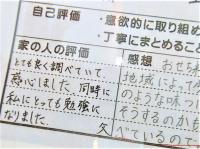 自己評価
・意欲的に取り組め
・丁寧にまとめること
家の人の評価
とても良く調べていて、
感心しました。同時に
私にとっても勉強に
なりました。
感想
おせち
地域によって
のような味つ
そうするのかも
べているので